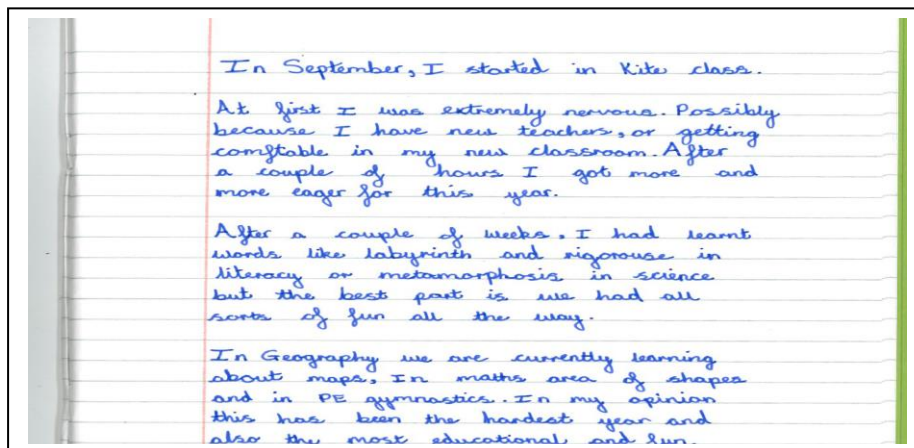 In September, I started in Kite class.
At first I was extremely nervous. Possibly
because I have new teachers, or getting
comftable in my new classroom. After
a couple of hours I got more and
more eager for this year.
After a couple of weeks, I had learnt
words like labyrinth and rigorouse in
literacy or metamorphosis in science
but the best part is we had all
sorts of fun all the way.
In Geography we are currently learning
about maps, In maths area of shapes
and in PE gymnastics. In my opinion
this has been the hardest year and
also the most educational and fun.